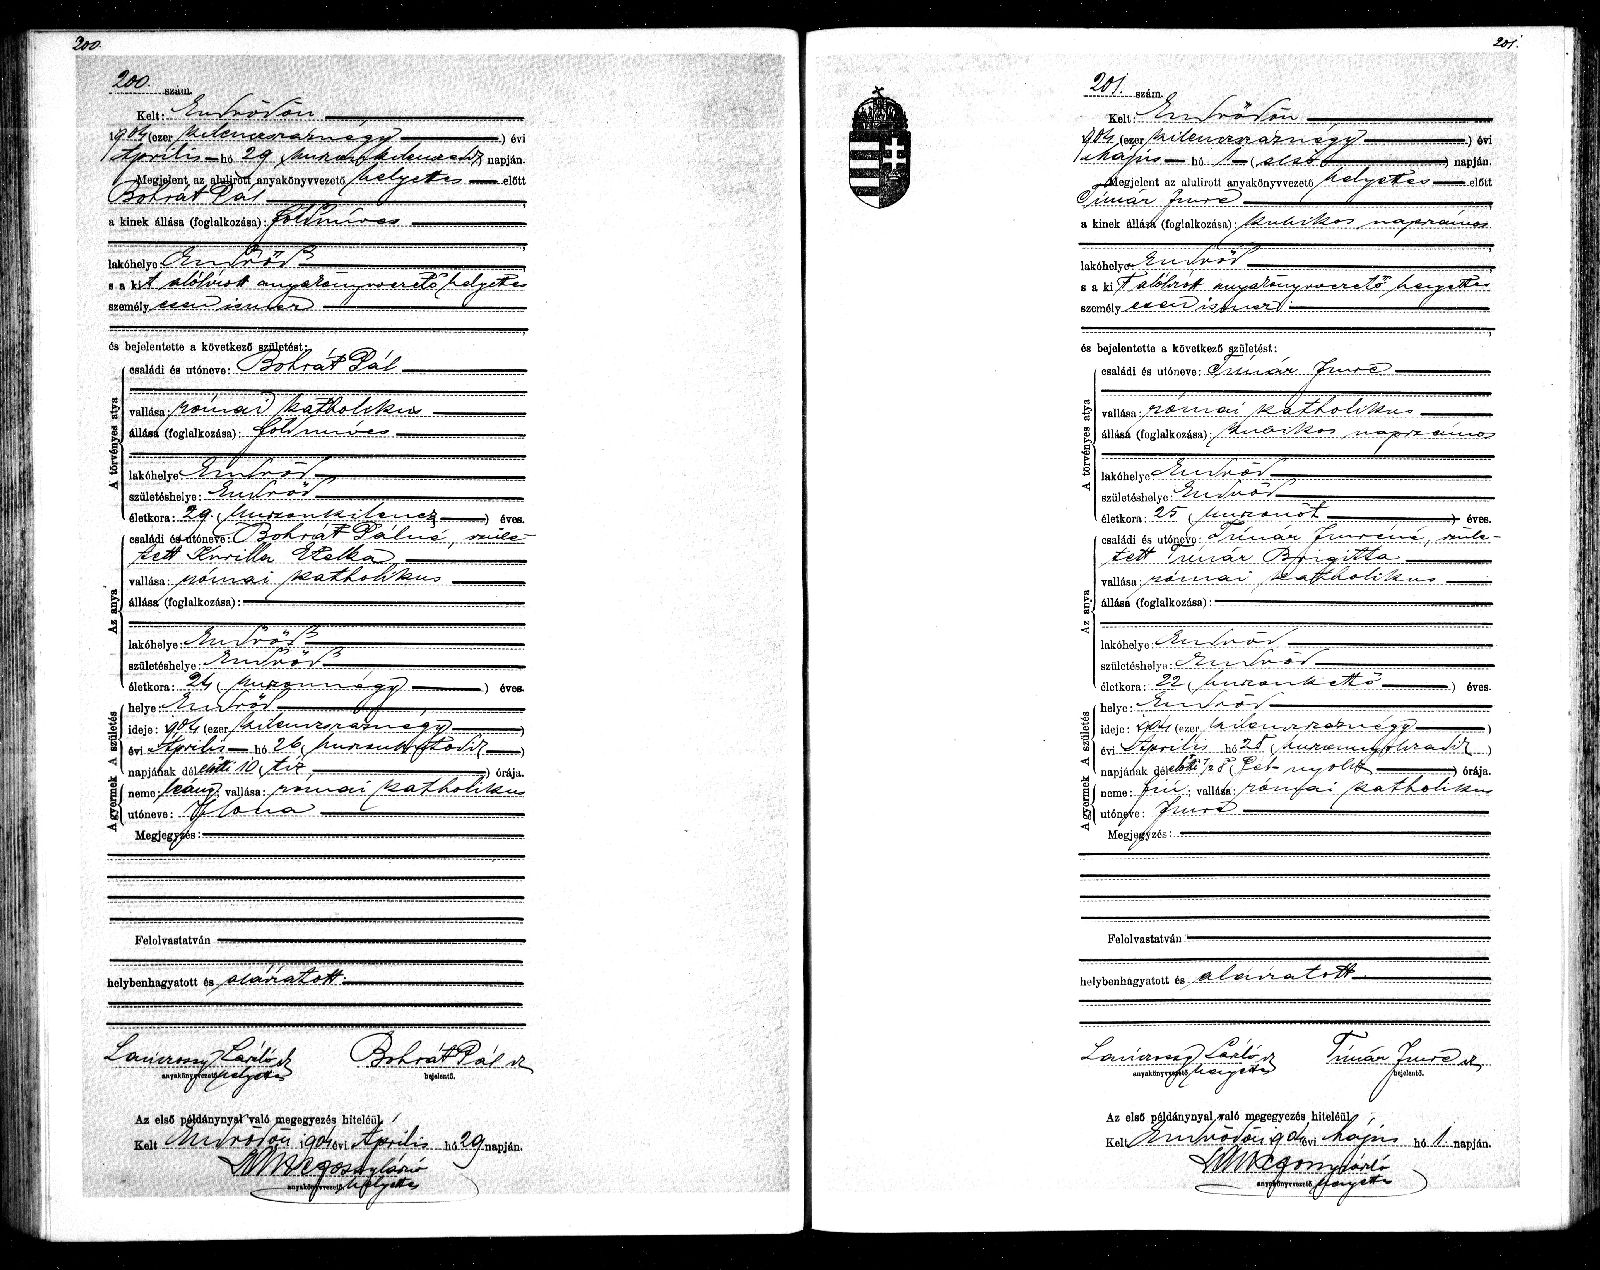 200.
200. szám.
Kelt: Endrődön
1904 (ezer kilenczszáznégy) évi
Április hó 29 (huszonkilenczedik) napján.
Megjelent az alulirott anyakönyvvezető helyettes előtt
Bohrát Pál
a kinek állása (foglalkozása): földmíves
lakóhelye Endrőd
s a kit alólirott anyakönyvvezető helyettes
személyesen ismer
és bejelentette a következő születést:
A törvényes atya
családi és utóneve: Bohrát Pál
vallása: római katholikus
állása (foglalkozása): földmíves
lakóhelye Endrőd
születéshelye: Endrőd
életkora: 29 (huszonkilencz) éves.
Az anya
családi és utóneve: Bohrát Pálné, szüle-
tett Kurilla Etelka
vallása: római katholikus
állása (foglalkozása):
lakóhelye: Endrőd
születéshelye: Endrőd
életkora: 24 (huszonnégy) éves.
A születés
helye: Endrőd
ideje: 1904 (ezer kilenczszáznégy)
évi Április hó 26 (huszonhatodik)
napjának délelőtti 10 (tíz) órája.
A gyermek
neme: leány; vallása: római katholikus
utóneve: Ilona
Megjegyzés:
Felolvastatván
helybenhagyatott és aláíratott.
László
helyettes
anyakönyvvezető
Bohrát Pál
bejelentő.
Az első példánynyal való megegyezés hiteléül.
Kelt Endrődön 1904 évi Április hó 29 napján.
László
helyettes
anyakönyvvezető
201.
201. szám.
Kelt: Endrődön
1904 (ezer kilenczszáznégy) évi
Május hó 1 (első) napján.
Megjelent az alulirott anyakönyvvezető helyettes előtt
Tímár Imre
a kinek állása (foglalkozása): kubikos napszámos
lakóhelye Endrőd
s a kit alólirott anyakönyvvezető helyettes
személyesen ismer
és bejelentette a következő születést:
A törvényes atya
családi és utóneve: Tímár Imre
vallása: római katholikus
állása (foglalkozása): kubikos napszámos
lakóhelye Endrőd
születéshelye: Endrőd
életkora: 25 (huszonöt) éves.
Az anya
családi és utóneve: Tímár Imréné, szüle-
tett Tímár Brigitta
vallása: római katholikus
állása (foglalkozása):
lakóhelye: Endrőd
születéshelye: Endrőd
életkora: 22 (huszonkettő) éves.
A születés
helye: Endrőd
ideje: 1904 (ezer kilenczszáznégy)
évi Április hó 28 (huszonnyolczadik)
napjának délelőtti 1/2 8 (fél nyolcz) órája.
A gyermek
neme: fiú; vallása: római katholikus
utóneve: Imre
Megjegyzés:
Felolvastatván
helybenhagyatott és aláíratott.
László
helyettes
anyakönyvvezető
Tímár Imre
bejelentő.
Az első példánynyal való megegyezés hiteléül.
Kelt Endrődön 1904 évi Május hó 1 napján.
László
helyettes
anyakönyvvezető